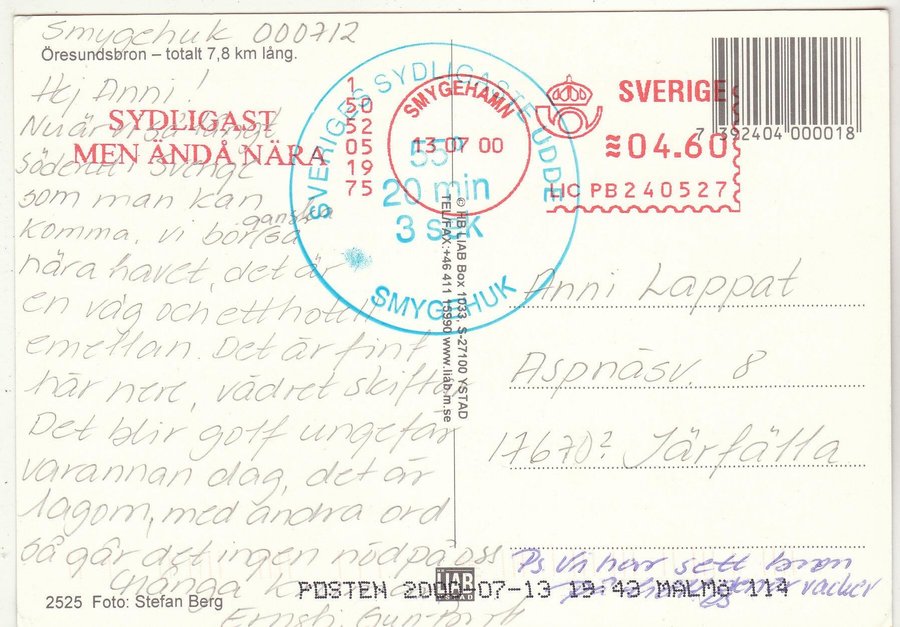 Smygehuk 000712
Öresundsbron – totalt 7,8 km lång.
Hej Anni!
Nu är vi så långt
söderut i Sverige
som man kan
komma, vi bor ganska
nära havet, det är
en väg och ett hotell
emellan. Det är fint
här nere, vädret skiftar
Det blir golf ungefär
varannan dag, det är
lagom, med andra ord
så går det ingen nöd på oss
Många
2525 Foto: Stefan Berg
SYDLIGAST
MEN ÄNDÅ NÄRA
1
50
52
05
19
75
SVERIGES SYDLIGASTE UDDE
55°
20 min
3 sek
SMYGEHUK
SMYGEHAMN
13 07 00
SVERIGE
≋04.60
LIC PB240527
7 392404 000018
© HB LIAB Box 1033, S-27100 YSTAD
TEL/FAX:+46 411 15990 www.liab-m.se
Anni Lappat
Aspnäsv. 8
17670? Järfälla
Ps Vi har sett bron
vacker
LIAB
YSTAD
POSTEN 2000-07-13 19 43 MALMÖ 114